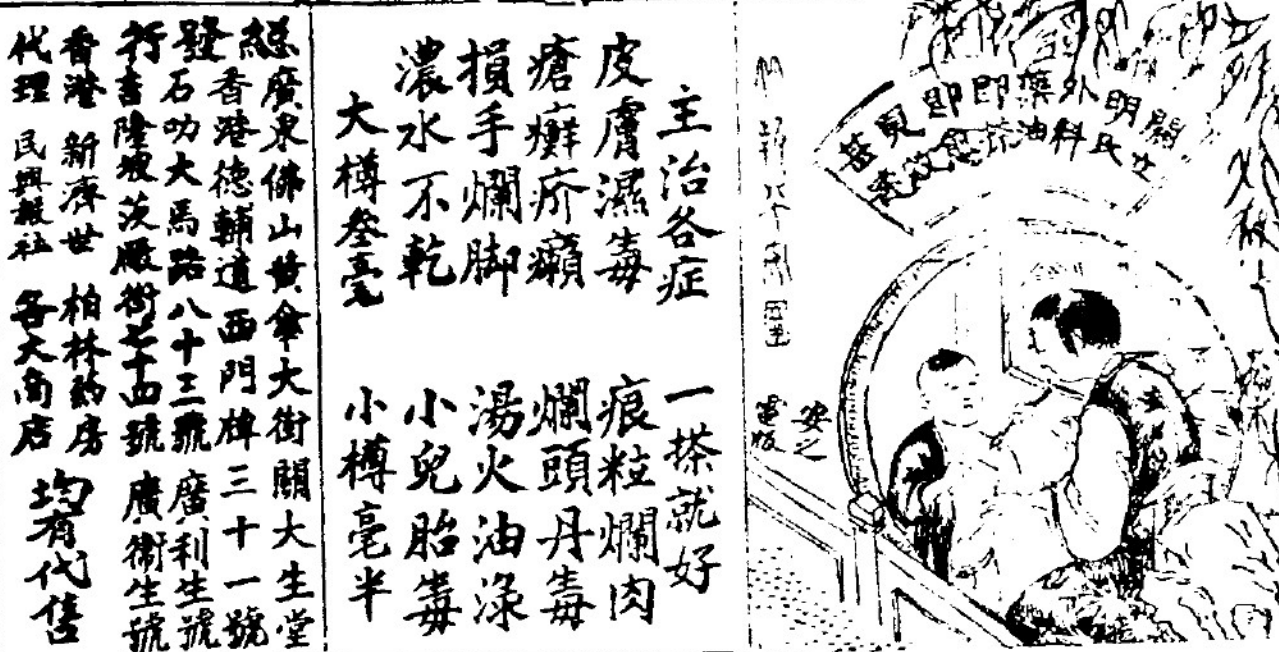 外科藥油
即搽即愈
安之
電版
主治各症 一搽就好
皮膚濕毒 痕粒爛肉
瘡癬疥癩 爛頭丹毒
損手爛脚 湯火油淥
濃水不乾 小兒胎毒
大樽叁毫 小樽毫半
總發行
廣東佛山黄傘大街關大生堂
香港德輔道西門牌三十一號
石叻大馬路八十三號 廣利生號
吉隆坡茨厰街七十四號 廣衛生號
香港 新濟世 柏林葯房
代理 民興報社 各大商店
均有代售